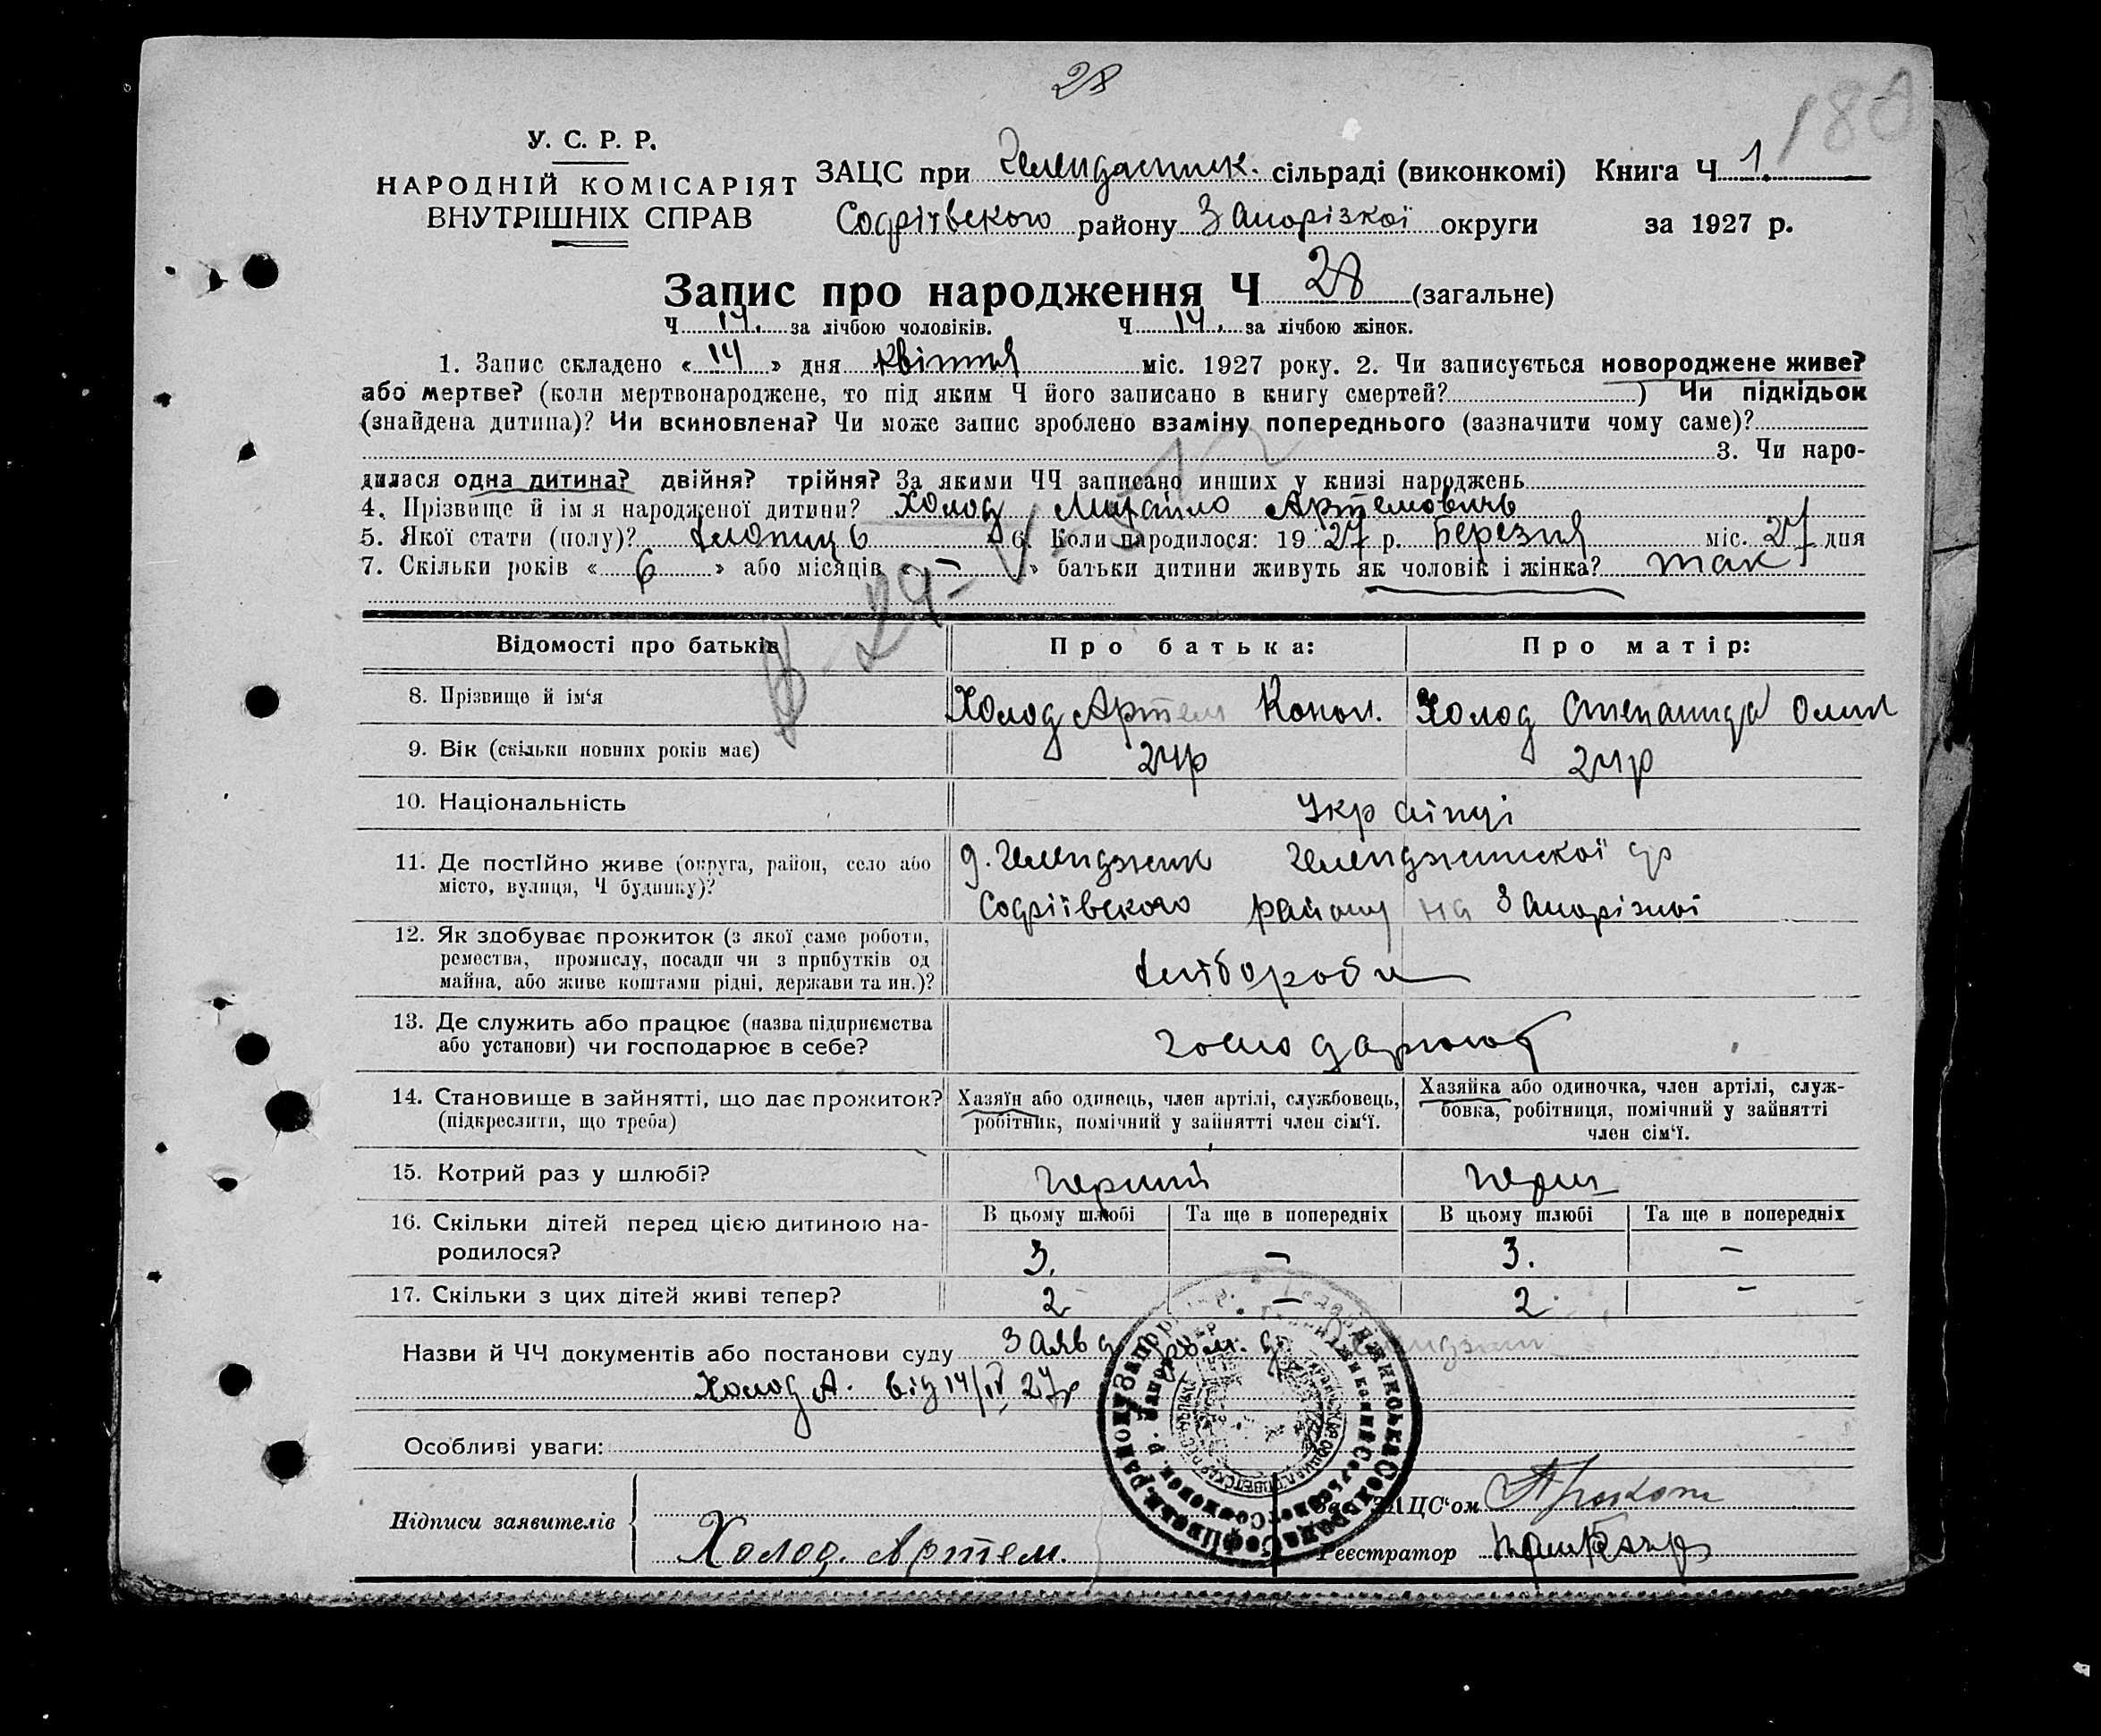 28
180
У. С. Р. Р.
НАРОДНІЙ КОМІСАРІЯТ
ВНУТРІШНІХ СПРАВ
ЗАЦС при сільраді (виконкомі) Книга Ч 1.
Софіївского району Запорізкої округи за 1927 р.
Запис про народження Ч 28 (загальне)
Ч 14. за лічбою чоловіків. Ч 14. за лічбою жінок.
1. Запис складено « 14 » дня квітня міс. 1927 року. 2. Чи записується новороджене живе?
або мертве? (коли мертвонароджене, то під яким Ч його записано в книгу смертей? ) Чи підкідьок
(знайдена дитина)? Чи всиновлена? Чи може запис зроблено взаміну попереднього (зазначити чому саме)?
3. Чи наро-
дилася одна дитина? двійня? трійня? За якими ЧЧ записано инших у книзі народжень
4. Прізвище й ім я народженої дитини? Холод Михайло Артемовичь
5. Якої стати (полу)? хлопиць 6. Коли народилося: 19 27 р. Березня міс. 27 дня
7. Скільки років « 6 » або місяців « – » батьки дитини живуть як чоловік і жінка? так
Відомості про батьків Про батька: Про матір:
8. Прізвище й ім'я Холод Артем Конон. Холод Степанида
9. Вік (скільки повних років має) 24р 24р
10. Національність Українці
11. Де постійно живе (округа, район, село або
місто, вулиця, Ч будинку)?
д. Гелендзжик
Софіївского району на Запорізкої
12. Як здобуває прожиток (з якої саме роботи,
ремества, промислу, посади чи з прибутків од
майна, або живе коштами рідні, держави та ин.)?
хлібороби
13. Де служить або працює (назва підприємства
або установи) чи господарює в себе?
господарюют
14. Становище в зайнятті, що дає прожиток?
(підкреслити, що треба)
Хазяїн або одинець, член артілі, службовець,
робітник, помічний у зайнятті член сім'ї.
Хазяйка або одиночка, член артілі, служ-
бовка, робітниця, помічний у зайнятті
член сім'ї.
15. Котрий раз у шлюбі? перший перш
16. Скільки дітей перед цією дитиною на-
родилося?
В цьому шлюбі Та ще в попередніх В цьому шлюбі Та ще в попередніх
3. – 3. –
17. Скільки з цих дітей живі тепер? 2 – 2 –
Назви й ЧЧ документів або постанови суду Заява
Холод А. від 14/IV 27р
Особливі уваги:
Підписи заявителів Холод. Артем.
Зав. ЗАЦС'ом
Реєстратор